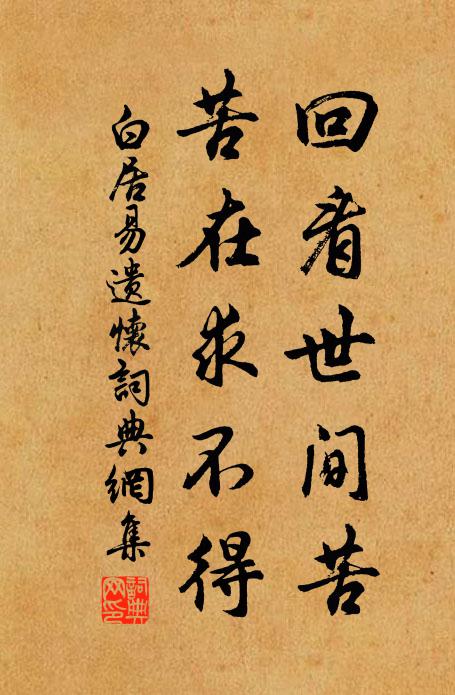 回看世间苦
苦在求不得
白居易遗怀词典網集
词典
网印